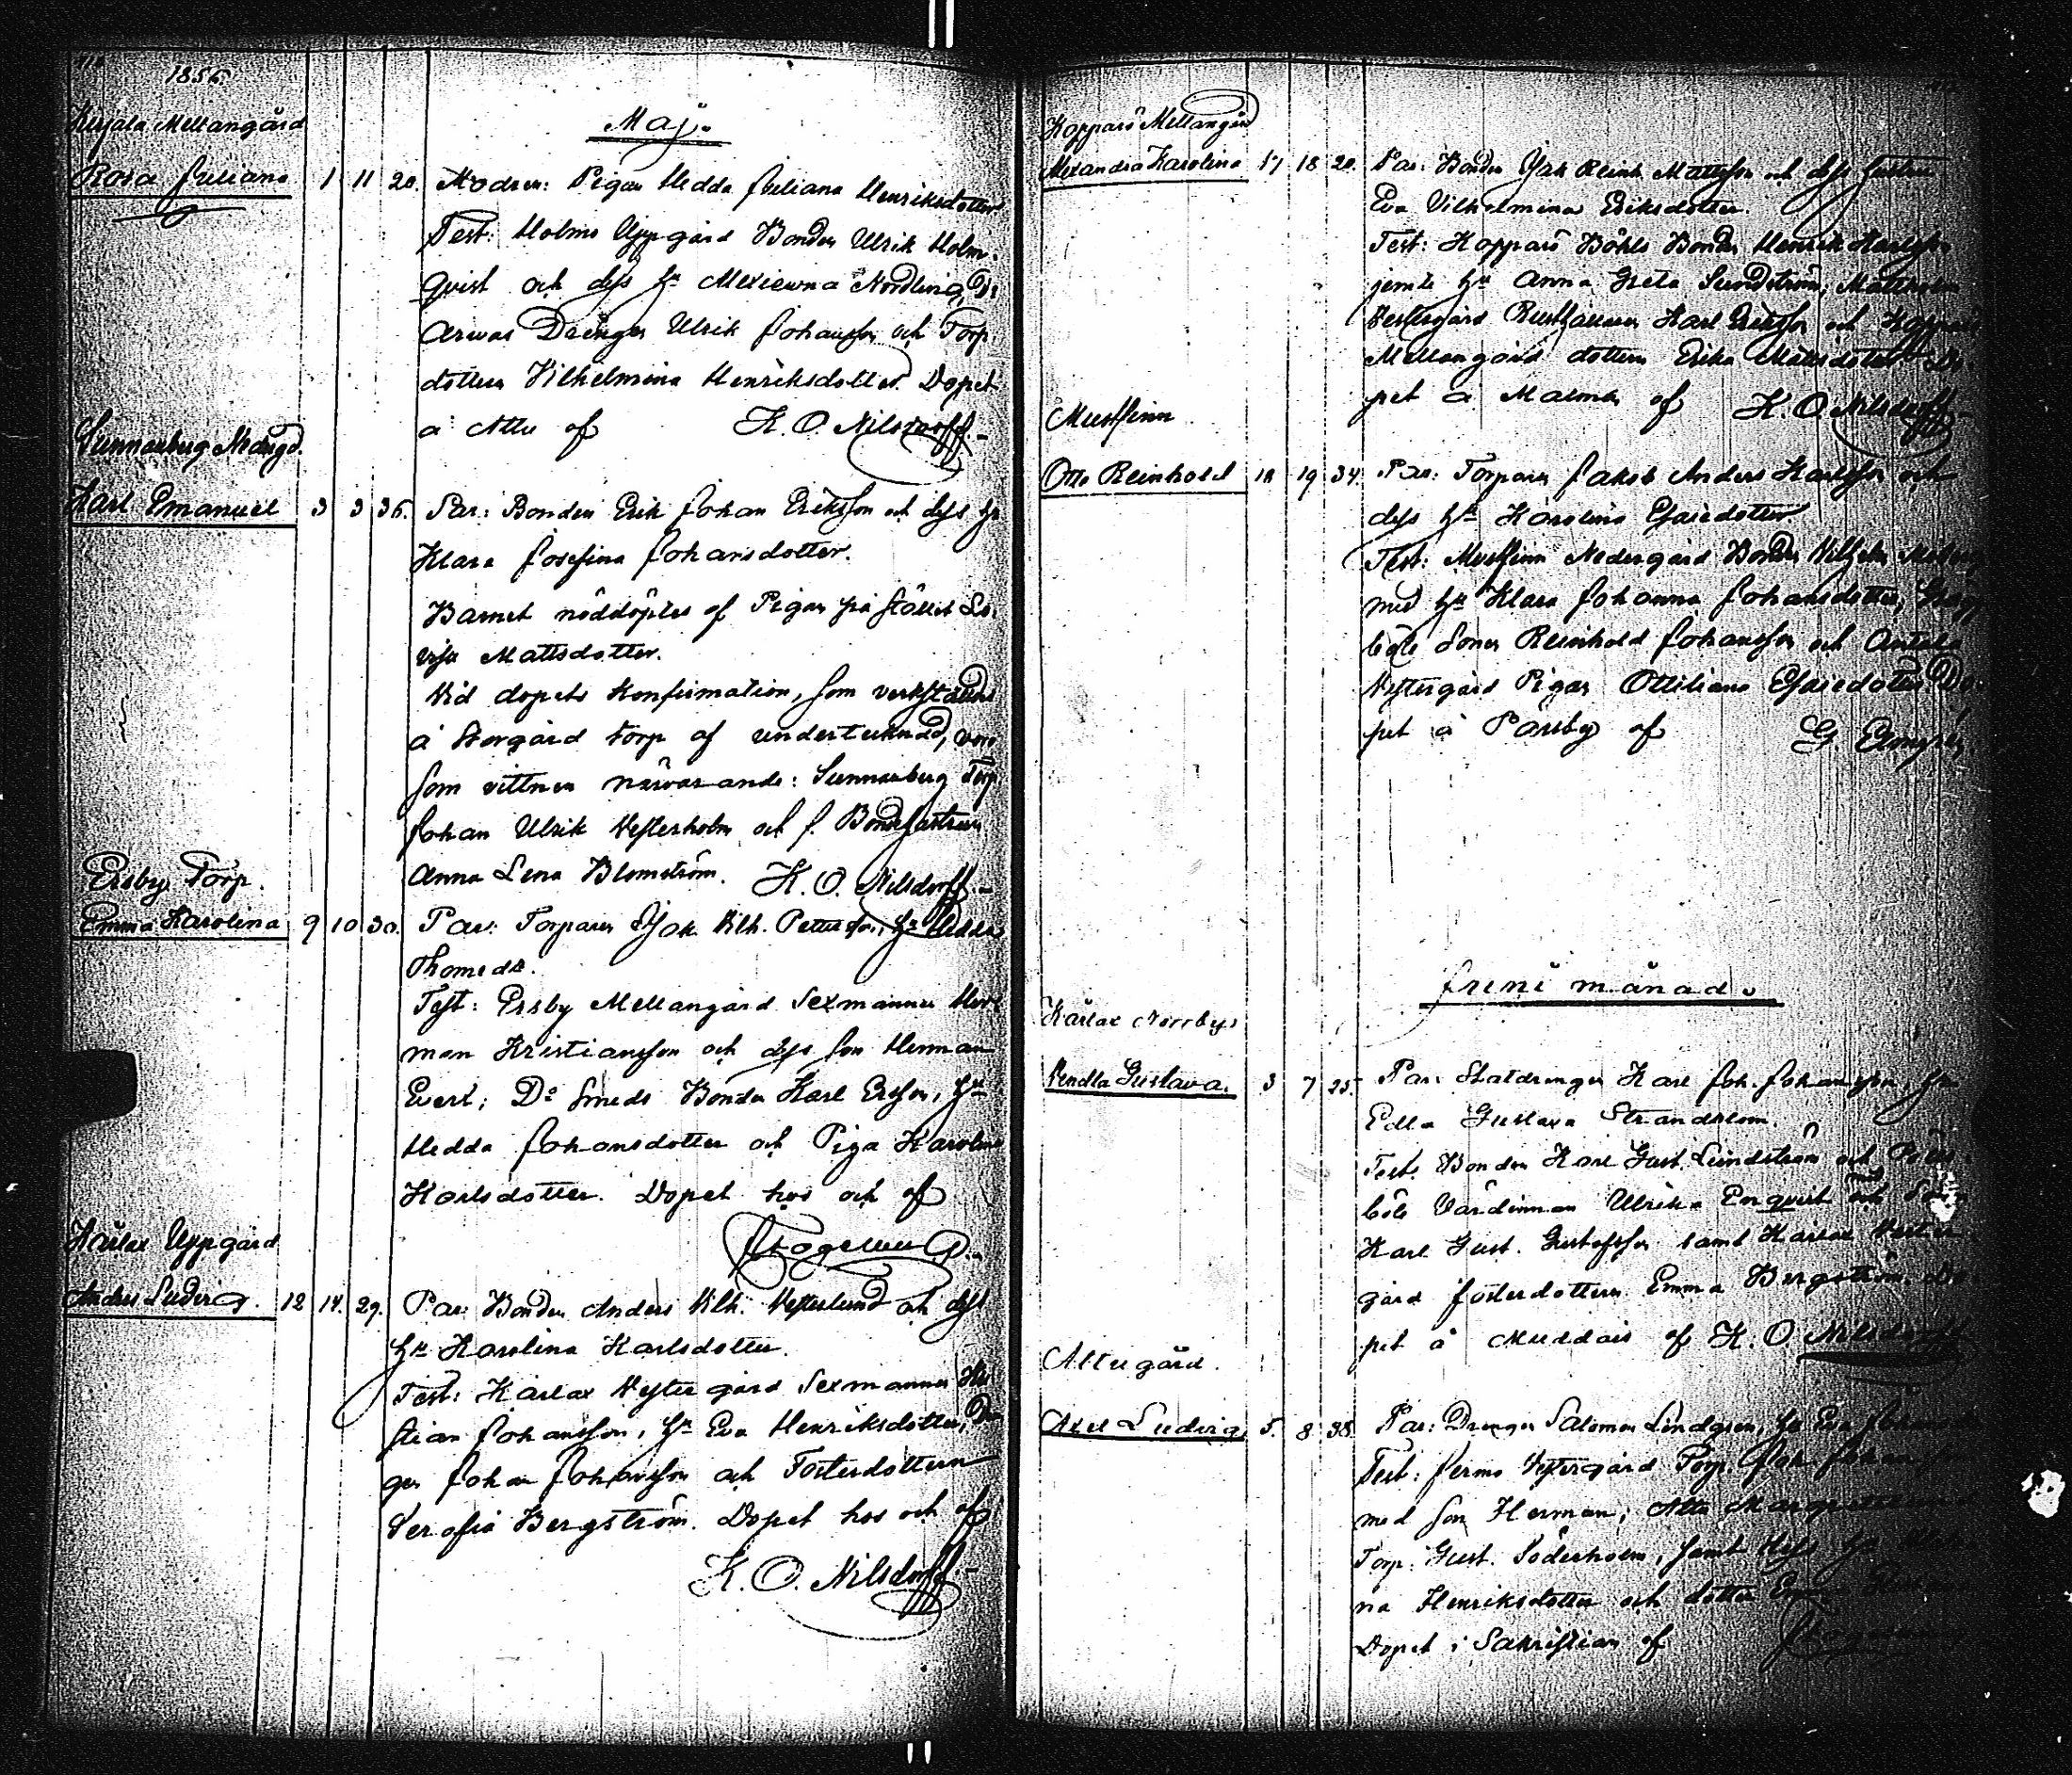 1856
Maj.
Mellangård
Rosa Juliana 1 11 20. Modren: Pigan Hedda Juliana Henriksdotter
Test: Holms Uppgård Bonden Ulrik Holm-
qvist och dess hu Nordling, D:o
Drängen Ulrik Johansson och Torp.
dottern Vilhelmina Henriksdotter. Döpet
å Attu af K. O. Nilsdorff.
Sunnanberg
Karl Emanuel 3 3 36. Par: Bonden Erik Johan Eriksson och dess hu
Klara Josefina Johansdotter.
Barnet nöddöptes af Pigan på stället Lo-
visa Mattsdotter.
Vid dopets Konfirmation, som verkställdes
å Storgård torp af undertecknad, voro
som vittnen närvarande: Sunnanberg Torp.
Johan Ulrik Vesterholm och f. Bondehustrun
Anna Lena Blomström. K. O. Nilsdorff.
Ersby Torp.
Emma Karolina 9 10 30. Par: Torparen Joh. Vilh. Pettersson, hu Hedda
Thomedr.
Test: Ersby Mellangård Sexmannen Her-
man Kristiansson och dess son Herman
Evert; Do Smeds Bonden Karl Ersson, hu
Hedda Johansdotter och Piga Karolina
Karlsdotter. Döpet hos och af
Kärlax Uppgård
Anders Ludvig. 12 14. 29. Par: Bonden Anders Vilh. Vesterlund och dess
hu Karolina Karlsdotter.
Test: Kärlax Vestergård Sexmannen Kri-
stian Johansson, hu Eva Henriksdotter, Drän-
gen Johan Johansson och Fosterdottern
Serafia Bergström. Döpet hos och af
K. O. Nilsdorff.
Koppars Mellangård
Alexandra Karolina 17 18 20. Par: Bonden Joh. Reinh. Mattsson och dess hustru
Eva Vilhelmina Eriksdotter.
Test: Koppars Böhls Bonden Henrik Karlsson
jemte hu Anna Greta Sundström,
Vestergård Rusthållaren Karl Eriksson och Koppars
Mellangård dottern Erika Mattsdotter. Dö-
pet å Malmen af K. O. Nilsdorff.
Mustfinn
Otto Reinhold 18 19 34. Par: Torparen Jakob Anders Karlsson och
dess hu Karolina Esaiedotter.
Test: Mustfinn Nedergård Bonden Vilhelm
med hu Klara Johanna Johansdotter,
böle Sonen Reinhold Johansson och
Vestergård Pigan Ottiliana Esaiedotter. Dö-
pet å Parsby af G.
Juni månad.
Kärlax Norrby
Vendla Gustava. 3 7 25. Par: Statdrängen Karl Joh. Johansson, hu
Edla Gustava Strandstöm.
Test: Bonden Karl Gust. Lundström och
böle Värdinnan Ulrika Enqvist med Son
Karl Gust. Gustafsson samt Kärlax Vester-
gård fosterdottern Emma Bergström. Dö-
pet å Muddais af K. O. Nilsdorff
Attugård.
Axel Ludvig 5. 8 38. Par: Drängen Salomon Lindgren, hu Eva
Test: Jermo Vestergård Torp. Joh. Johan
med son Herman; Attu
Torp. Gust. Söderholm, samt hu
na Henriksdotter och dotter
Döpet i Sakristian af